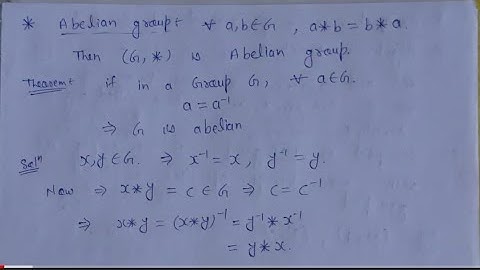 * Abelian group: ∀ a,b∈G , a*b = b*a.
Then (G,*) is Abelian group.
Theorem: if in a Group G, ∀ a∈G.
a = a⁻¹
⇒ G is abelian
Solⁿ x,y∈G. ⇒ x⁻¹ = x, y⁻¹ = y.
Now ⇒ x*y = c ∈ G ⇒ c = c⁻¹
⇒ x*y = (x*y)⁻¹ = y⁻¹ * x⁻¹
= y * x.